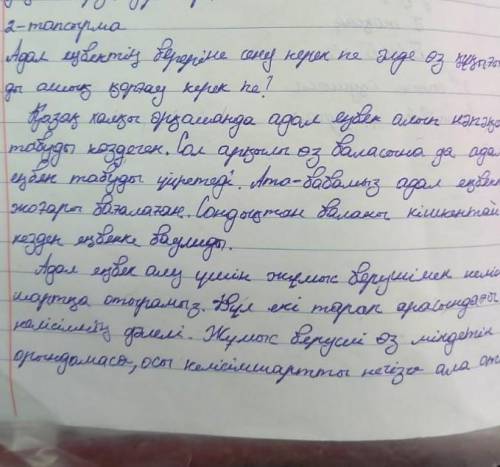 2-тапсырма
Адал еңбектің береріне сену керек пе әлде өз құқығы
ды ашық қорғау керек пе?
Қазақ халқы әрқашанда адал еңбек алып нәпақа
табуды көздеген. Сол арқылы өз баласына да адал
еңбек табуды үйретеді. Ата-бабамыз адал еңбек
жоғары бағалаған. Сондықтан баланы кішкентай
кезден еңбекке баулиды.
Адал еңбек алу үшін жұмыс берушімен келіс
шартқа отырамыз. Бұл екі тарап арасындағы
келісімнің дәлелі. Жұмыс беруші өз міндетін
орындамаса, осы келісімшартты негізге ала оты